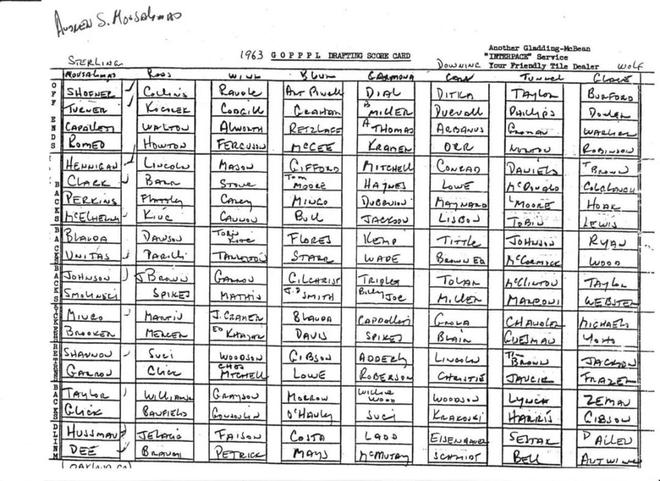 ANDREW S. MOUSALIMAS
Another Gladding-McBean
1963 G O P P P L DRAFTING SCORE CARD "INTERPACE" Service
STERLING DOWNING Your Friendly Tile Dealer WOLF
MOUSALIMAS ROSS WINK BLUM CARMONA TUNNEL
OFF ENDS
SHOFNER COLLINS RAVOLE ART POWELL DIAL DITKA TAYLOR BURFORD
TURNER KOCHER COGDILL GRAHAM B MILLER DUEVALL PHILLIPS DOWLER
CAPPOLLETI WALTON ALWORTH RETZLAFF A THOMAS ARBANUS GROMAN WARLICK
ROMEO HOWTON FERGUSON MCGEE KRAMER ORR NORTON ROBINSON
HENNIGAN LINCOLN MASON GIFFORD MITCHELL CONRAD DANIELS T BROWN
BACKS
CLARK BARR STONE TOM MOORE HAYNES LOWE MCDONALD COLCLOUGH
PERKINS CAREY MINGO DUBENION MAYNARD L MOORE HOAK
MCELHENNY KING CANNON BULL JACKSON LISBON TOBIN LEWIS
BLANDA DAWSON TOBIN ROTE FLORES KEMP TITTLE JOHNSON RYAN
UNITAS PARILLI TARKENTON STARR WADE BROWN ED MCCORMICK WOOD
JOHNSON J BROWN GARRON GILCHRIST TRIPLET TOLAR MCCLINTON TAYLOR
SMOLINSKI SPIKES MATHIS J.D SMITH BILLY JOE MILLER MARCONI WEBSTER
MINGO MARTIN J. CRAMER BLANDA CAPPOLLETI GROZA CHANDLER MICHAELS
BROOKER MERCER ED KHAYAT DAVIS SPIKES BLAIR GUESMAN YOHO
SHANNON SUCI WOODSON GIBSON ADDERLY LINCOLN TIM BROWN JACKSON
GARRON GLICK CHAS MITCHELL LOWE ROBERSON CHRISTIE JANCIK FRAZER
BACKS
TAYLOR WILLIAMS GRAYSON MORROW WILLIE WOOD WOODSON LYNCH ZEMAN
GLICK BANFIELD GONSOULIN O'HANLEY SUCI KRAKOSKI HARRIS GIBSON
DLINM
HUSSMAN JELACIC FAISON COSTA LADD EISENHAUER SESTAK D ALLEN
DEE BRAUN PETRICK MAYS MCMURTRY SCHMIDT BELL ANTWINE